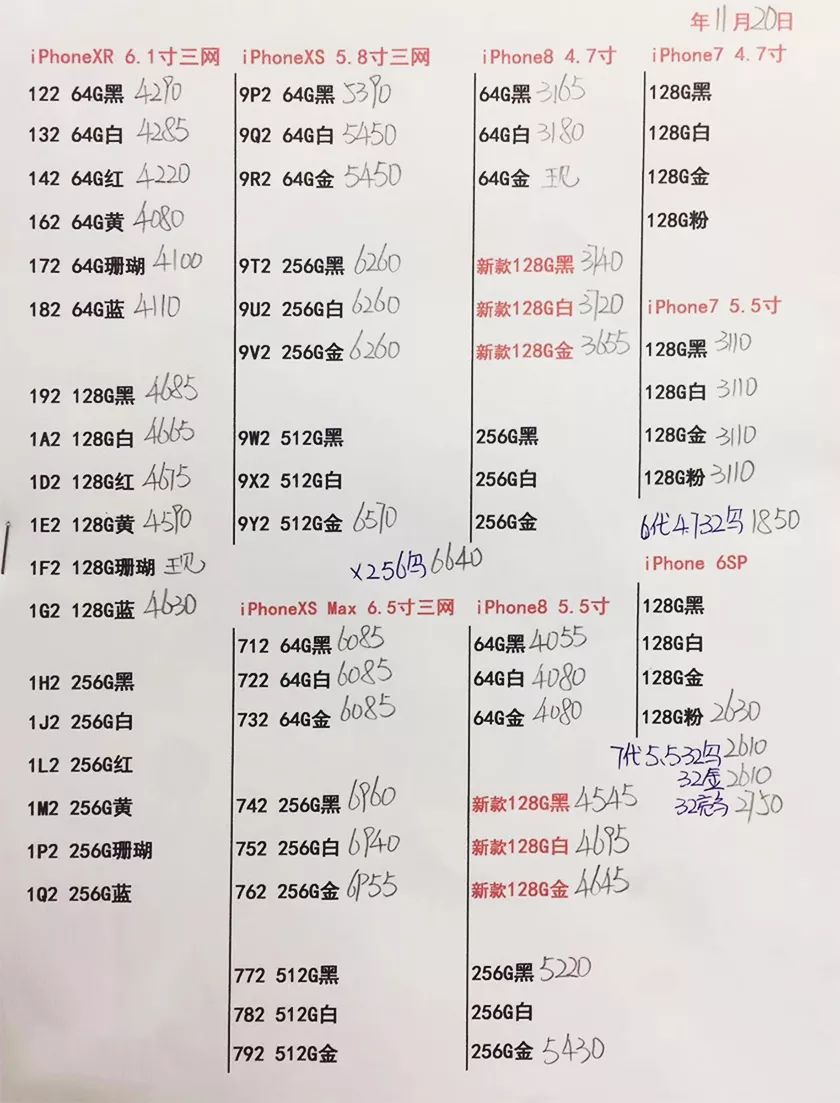 年11月20日
iPhoneXR 6.1寸三网
122 64G黑 4290
132 64G白 4285
142 64G红 4220
162 64G黄 4080
172 64G珊瑚 4100
182 64G蓝 4110
192 128G黑 4685
1A2 128G白 4665
1D2 128G红 4675
1E2 128G黄 4590
1F2 128G珊瑚 现
1G2 128G蓝 4630
1H2 256G黑
1J2 256G白
1L2 256G红
1M2 256G黄
1P2 256G珊瑚
1Q2 256G蓝
iPhoneXS 5.8寸三网
9P2 64G黑 5390
9Q2 64G白 5450
9R2 64G金 5450
9T2 256G黑 6260
9U2 256G白 6260
9V2 256G金 6260
9W2 512G黑
9X2 512G白
9Y2 512G金 6570
X256 6640
iPhoneXS Max 6.5寸三网
712 64G黑 6085
722 64G白 6085
732 64G金 6085
742 256G黑 6960
752 256G白 6940
762 256G金 6955
772 512G黑
782 512G白
792 512G金
iPhone8 4.7寸
64G黑 3165
64G白 3180
64G金 现
新款128G黑 3740
新款128G白 3720
新款128G金 3655
256G黑
256G白
256G金
iPhone8 5.5寸
64G黑 4055
64G白 4080
64G金 4080
新款128G黑 4545
新款128G白 4695
新款128G金 4645
256G黑 5220
256G白
256G金 5430
iPhone7 4.7寸
128G黑
128G白
128G金
128G粉
iPhone7 5.5寸
128G黑 3110
128G白 3110
128G金 3110
128G粉 3110
6代4.732 1850
iPhone 6SP
128G黑
128G白
128G金
128G粉 2630
7代5.532 2610
32金 2610
32 2750